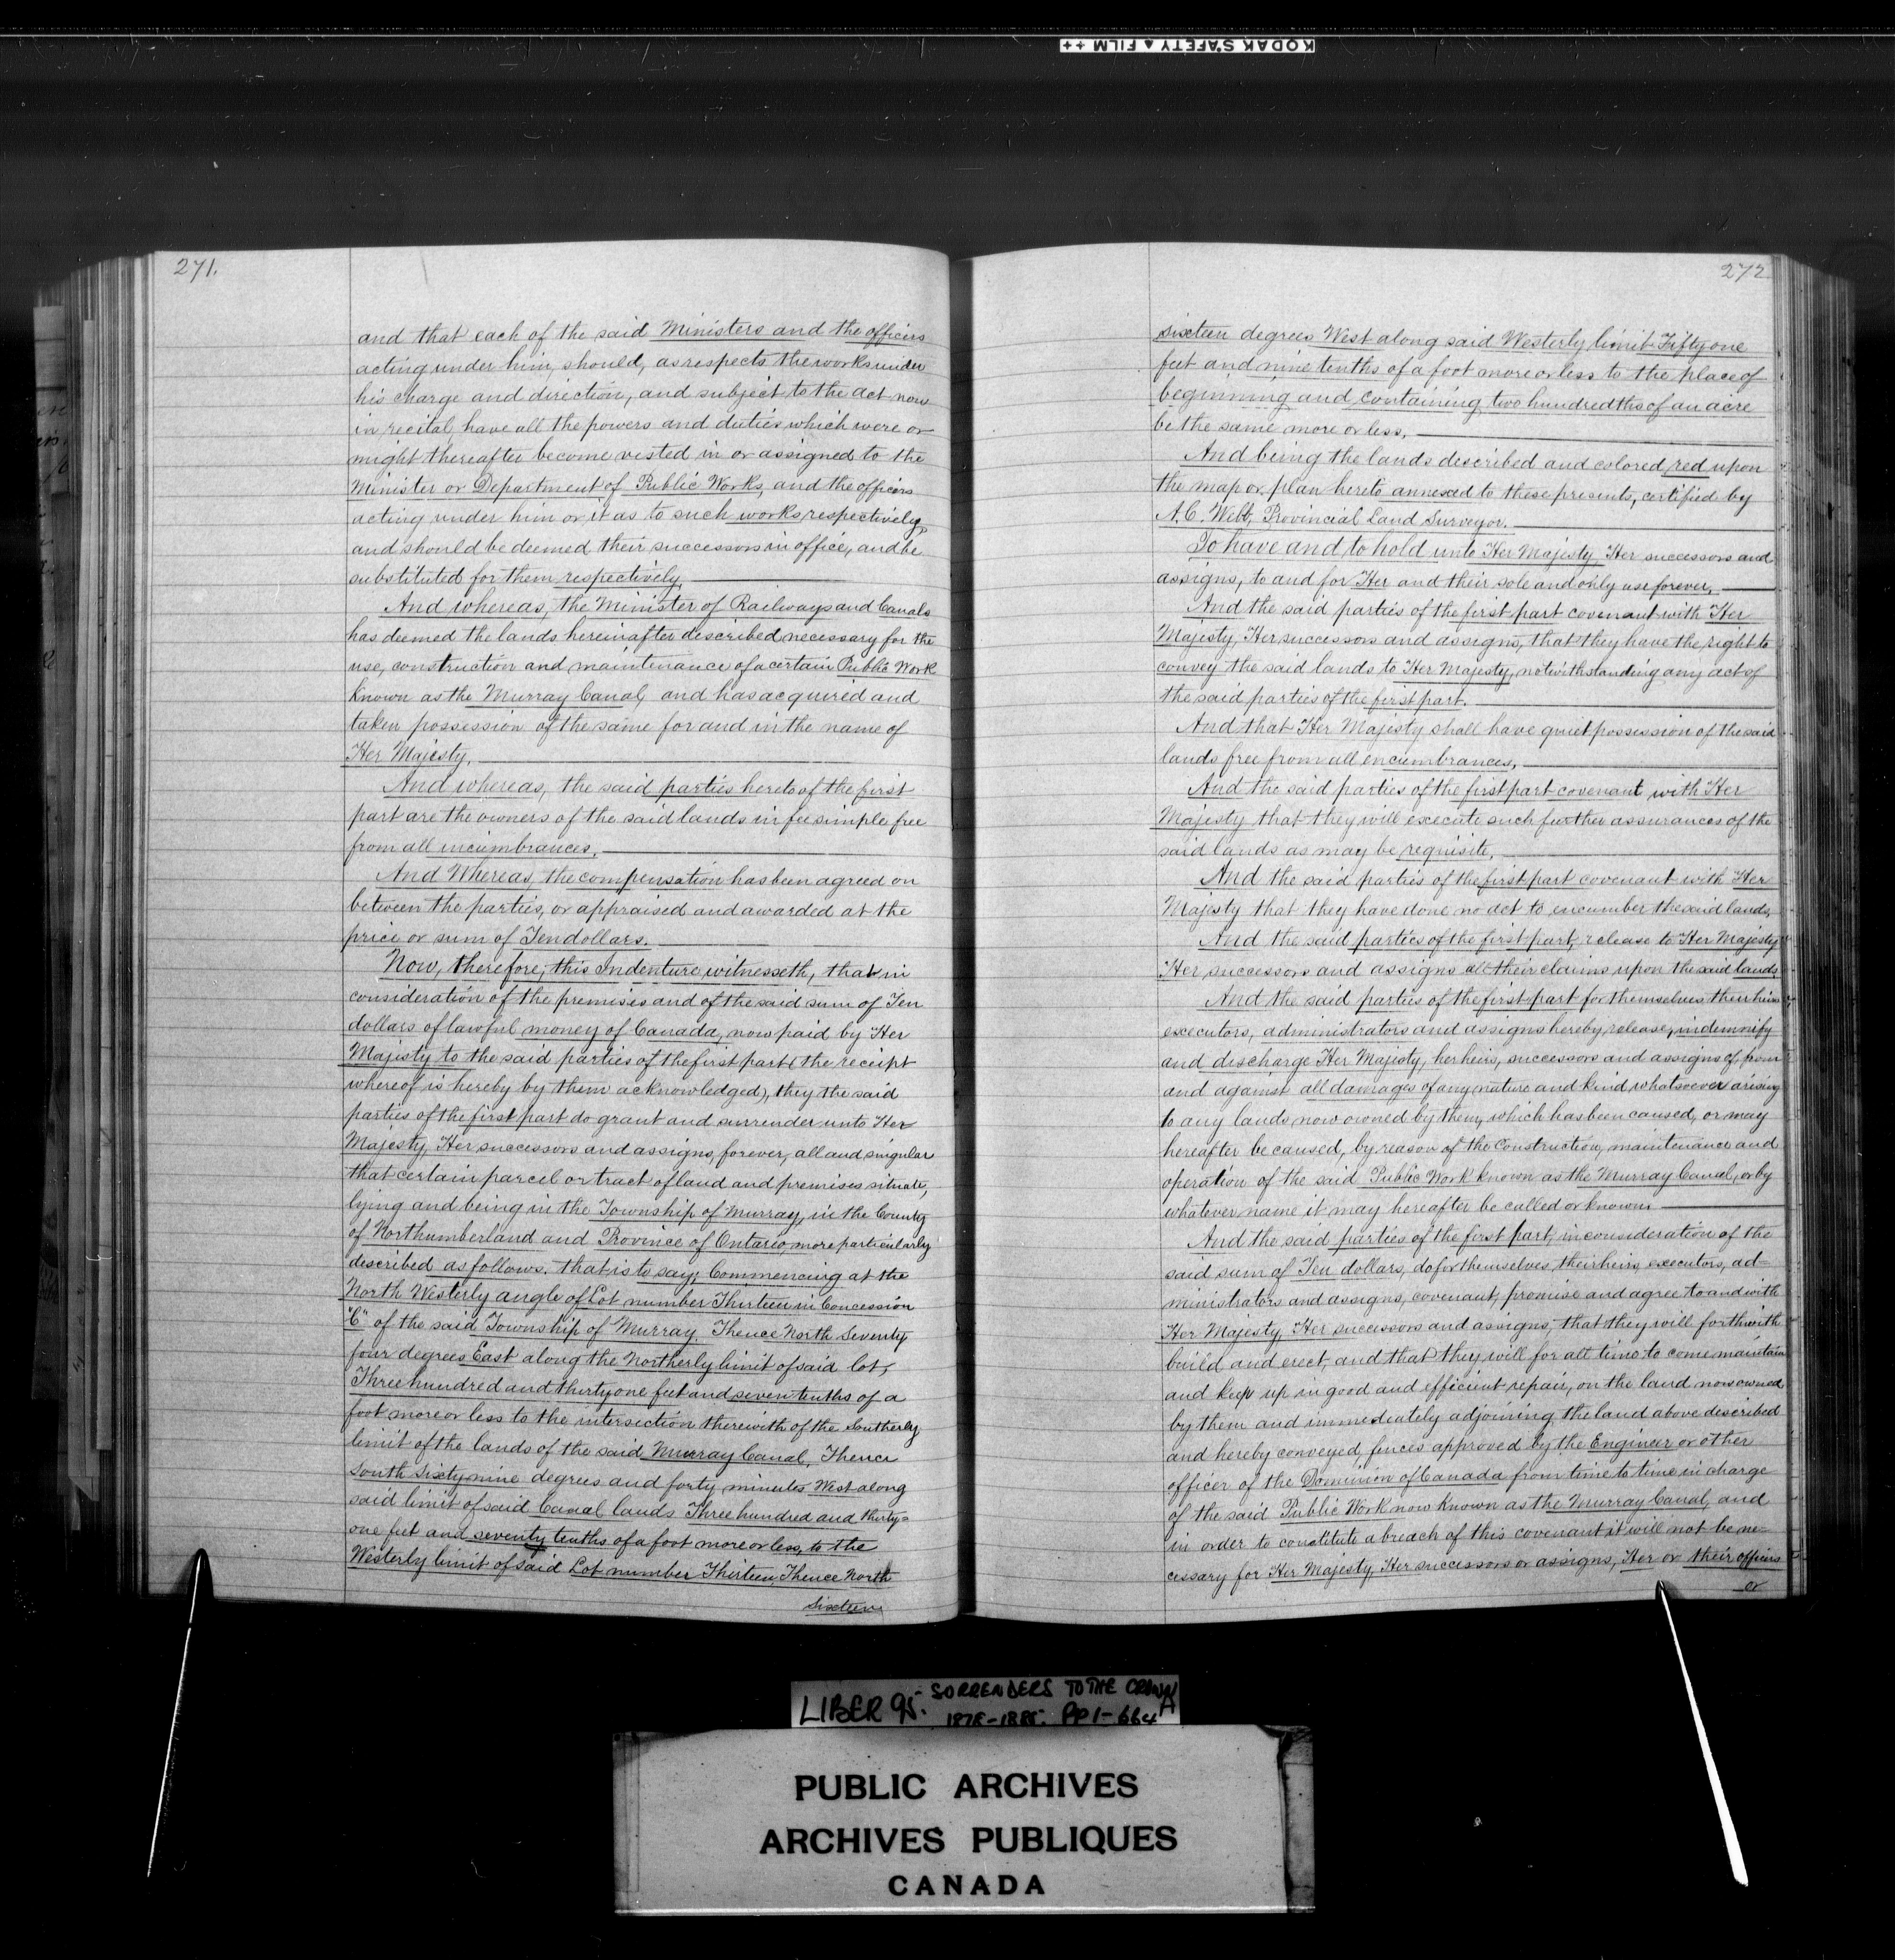 KODAK SAFETY ▲ FILM ++
271.
and that each of the said Ministers and the officers
acting under him, should, as respects the works under
his charge and direction, and subject to the act now
in recital have all the powers and duties which were or
might thereafter become vested in or assigned to the
Minister or Department of Public Works, and the officers
acting under him or it as to such works respectively,
and should be deemed their successors in office, and be
substituted for them respectively.
And whereas, the Minister of Railways and Canals
has deemed the lands hereinafter described necessary for the
use, construction and maintenance of a certain Public Work
known as the Murray Canal, and has acquired and
taken possession of the same for and in the name of
Her Majesty.
And whereas, the said parties hereto of the first
part are the owners of the said lands in fee simple free
from all incumbrances.
And Whereas, the compensation has been agreed on
between the parties, or appraised and awarded at the
price or sum of Ten dollars.
Now, therefore, this Indenture witnesseth, that in
consideration of the premises and of the said sum of Ten
dollars of lawful money of Canada, now paid by Her
Majesty to the said parties of the first part (the receipt
whereof is hereby by them acknowledged), they the said
parties of the first part do grant and surrender unto Her
Majesty, Her successors and assigns, forever, all and singular
that certain parcel or tract of land and premises situate,
lying and being in the Township of Murray, in the County
of Northumberland and Province of Ontario, more particularly
described as follows. that is to say; Commencing at the
North Westerly angle of Lot number Thirteen in Concession
"C" of the said Township of Murray. Thence North Seventy
four degrees East along the Northerly limit of said lot,
Three hundred and thirty one feet and seven tenths of a
foot more or less to the intersection therewith of the Southerly
limit of the lands of the said Murray Canal, Thence
South Sixty nine degrees and forty minutes West along
said limit of said Canal lands Three hundred and thirty=
one feet and seventy tenths of a foot more or less, to the
Westerly limit of said Lot number Thirteen, Thence North
Sixteen
272
sixteen degrees West along said Westerly limit Fifty one
feet and nine tenths of a foot more or less to the place of
beginning and containing two hundredths of an acre
be the same more or less.
And being the lands described and colored red upon
the map or plan hereto annexed to these presents, certified by
A. C. Webb, Provincial Land Surveyor.
To have and to hold unto Her Majesty, Her successors and
assigns, to and for Her and their sole and only use forever.
And the said parties of the first part covenant with Her
Majesty, Her successors and assigns, that they have the right to
convey the said lands to Her Majesty, notwithstanding any act of
the said parties of the first part.
And that Her Majesty shall have quiet possession of the said
lands free from all encumbrances.
And the said parties of the first part covenant with Her
Majesty that they will execute such further assurances of the
said lands as may be requisite.
And the said parties of the first part covenant with Her
Majesty that they have done no act to encumber the said lands,
And the said parties of the first part, release to Her Majesty
Her successors and assigns all their claims upon the said lands
And the said parties of the first part for themselves their heirs
executors, administrators and assigns hereby release, indemnify
and discharge Her Majesty, her heirs, successors and assigns of from
and against all damages of any nature and kind whatsoever arising
to any lands now owned by them, which has been caused, or may
hereafter be caused, by reason of the Construction, maintenance and
operation of the said Public Work known as the Murray Canal, or by
whatever name it may hereafter be called or known
And the said parties of the first part, in consideration of the
said sum of Ten dollars, do for themselves, their heirs, executors, ad=
ministrators and assigns, covenant, promise and agree to and with
Her Majesty, Her successors and assigns, that they will forthwith
build and erect, and that they will for all time to come maintain
and keep up in good and efficient repair, on the land now owned
by them and immediately adjoining the land above described
and hereby conveyed, fences approved by the Engineer or other
officer of the Dominion of Canada from time to time in charge
of the said Public Work now known as the Murray Canal, and
in order to constitute a breach of this covenant it will not be ne=
cessary for Her Majesty, Her successors or assigns, Her or their officers
or
LIBER 95. SORRENDERS TO THE CROWN
1878-1885. PP 1-664 A
PUBLIC ARCHIVES
ARCHIVES PUBLIQUES
CANADA